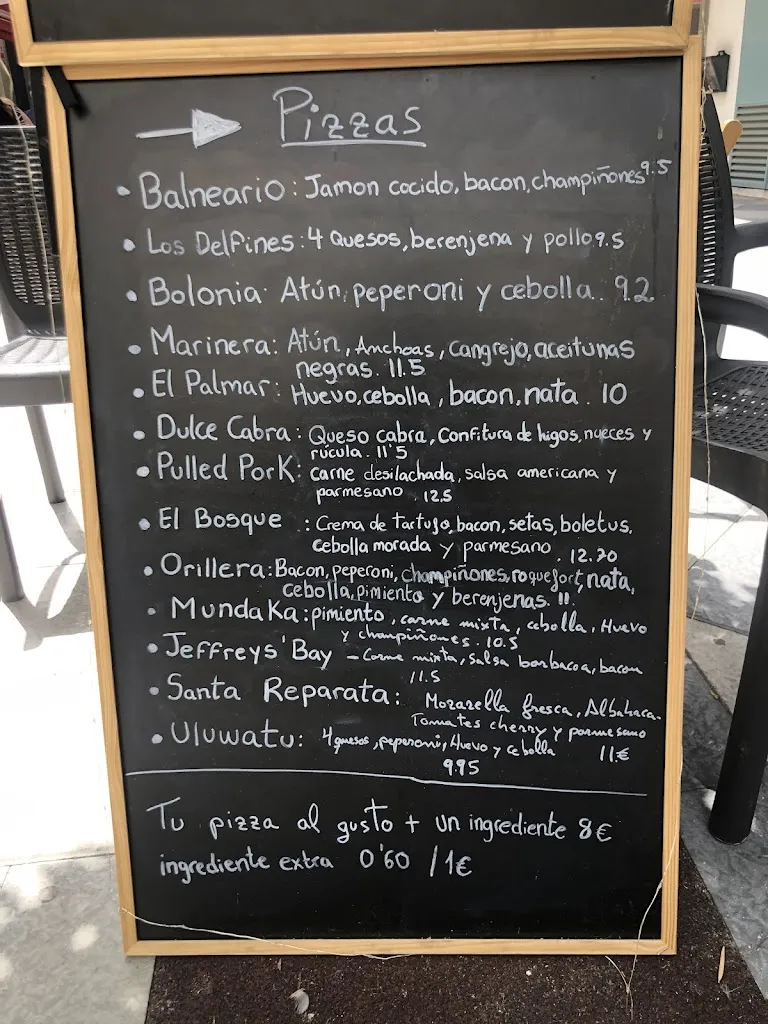 Pizzas
• Balneario: Jamon cocido, bacon, champiñones 9.5
• Los Delfines: 4 Quesos, berenjena y pollo 9.5
• Bolonia. Atún, peperoni y cebolla. 9.2
• Marinera: Atún, Anchoas, Cangrejo, aceitunas
negras. 11.5
• El Palmar: Huevo, cebolla, bacon, nata. 10
• Dulce Cabra: Queso cabra, Confitura de higos, nueces y
rúcula. 11'5
• Pulled Pork: carne desilachada, salsa americana y
parmesano. 12.5
• El Bosque: Crema de tartufo, bacon, setas, boletus,
cebolla morada y parmesano. 12.20
• Orillera: Bacon, peperoni, champiñones, roquefort, nata,
cebolla, pimiento y berenjenas. 11.
• Mundaka: pimiento, carne mixta, cebolla, Huevo
y champiñones. 10.5
• Jeffreys' Bay - Carne mixta, salsa barbacoa, bacon
11.5
• Santa Reparata: Mozarella fresca, Albahaca.
Tomates cherry y parmesano
11€
• Uluwatu: 4 quesos, peperoni, Huevo y cebolla
9.95
Tu pizza al gusto + un ingrediente 8€
ingrediente extra 0'60 / 1€